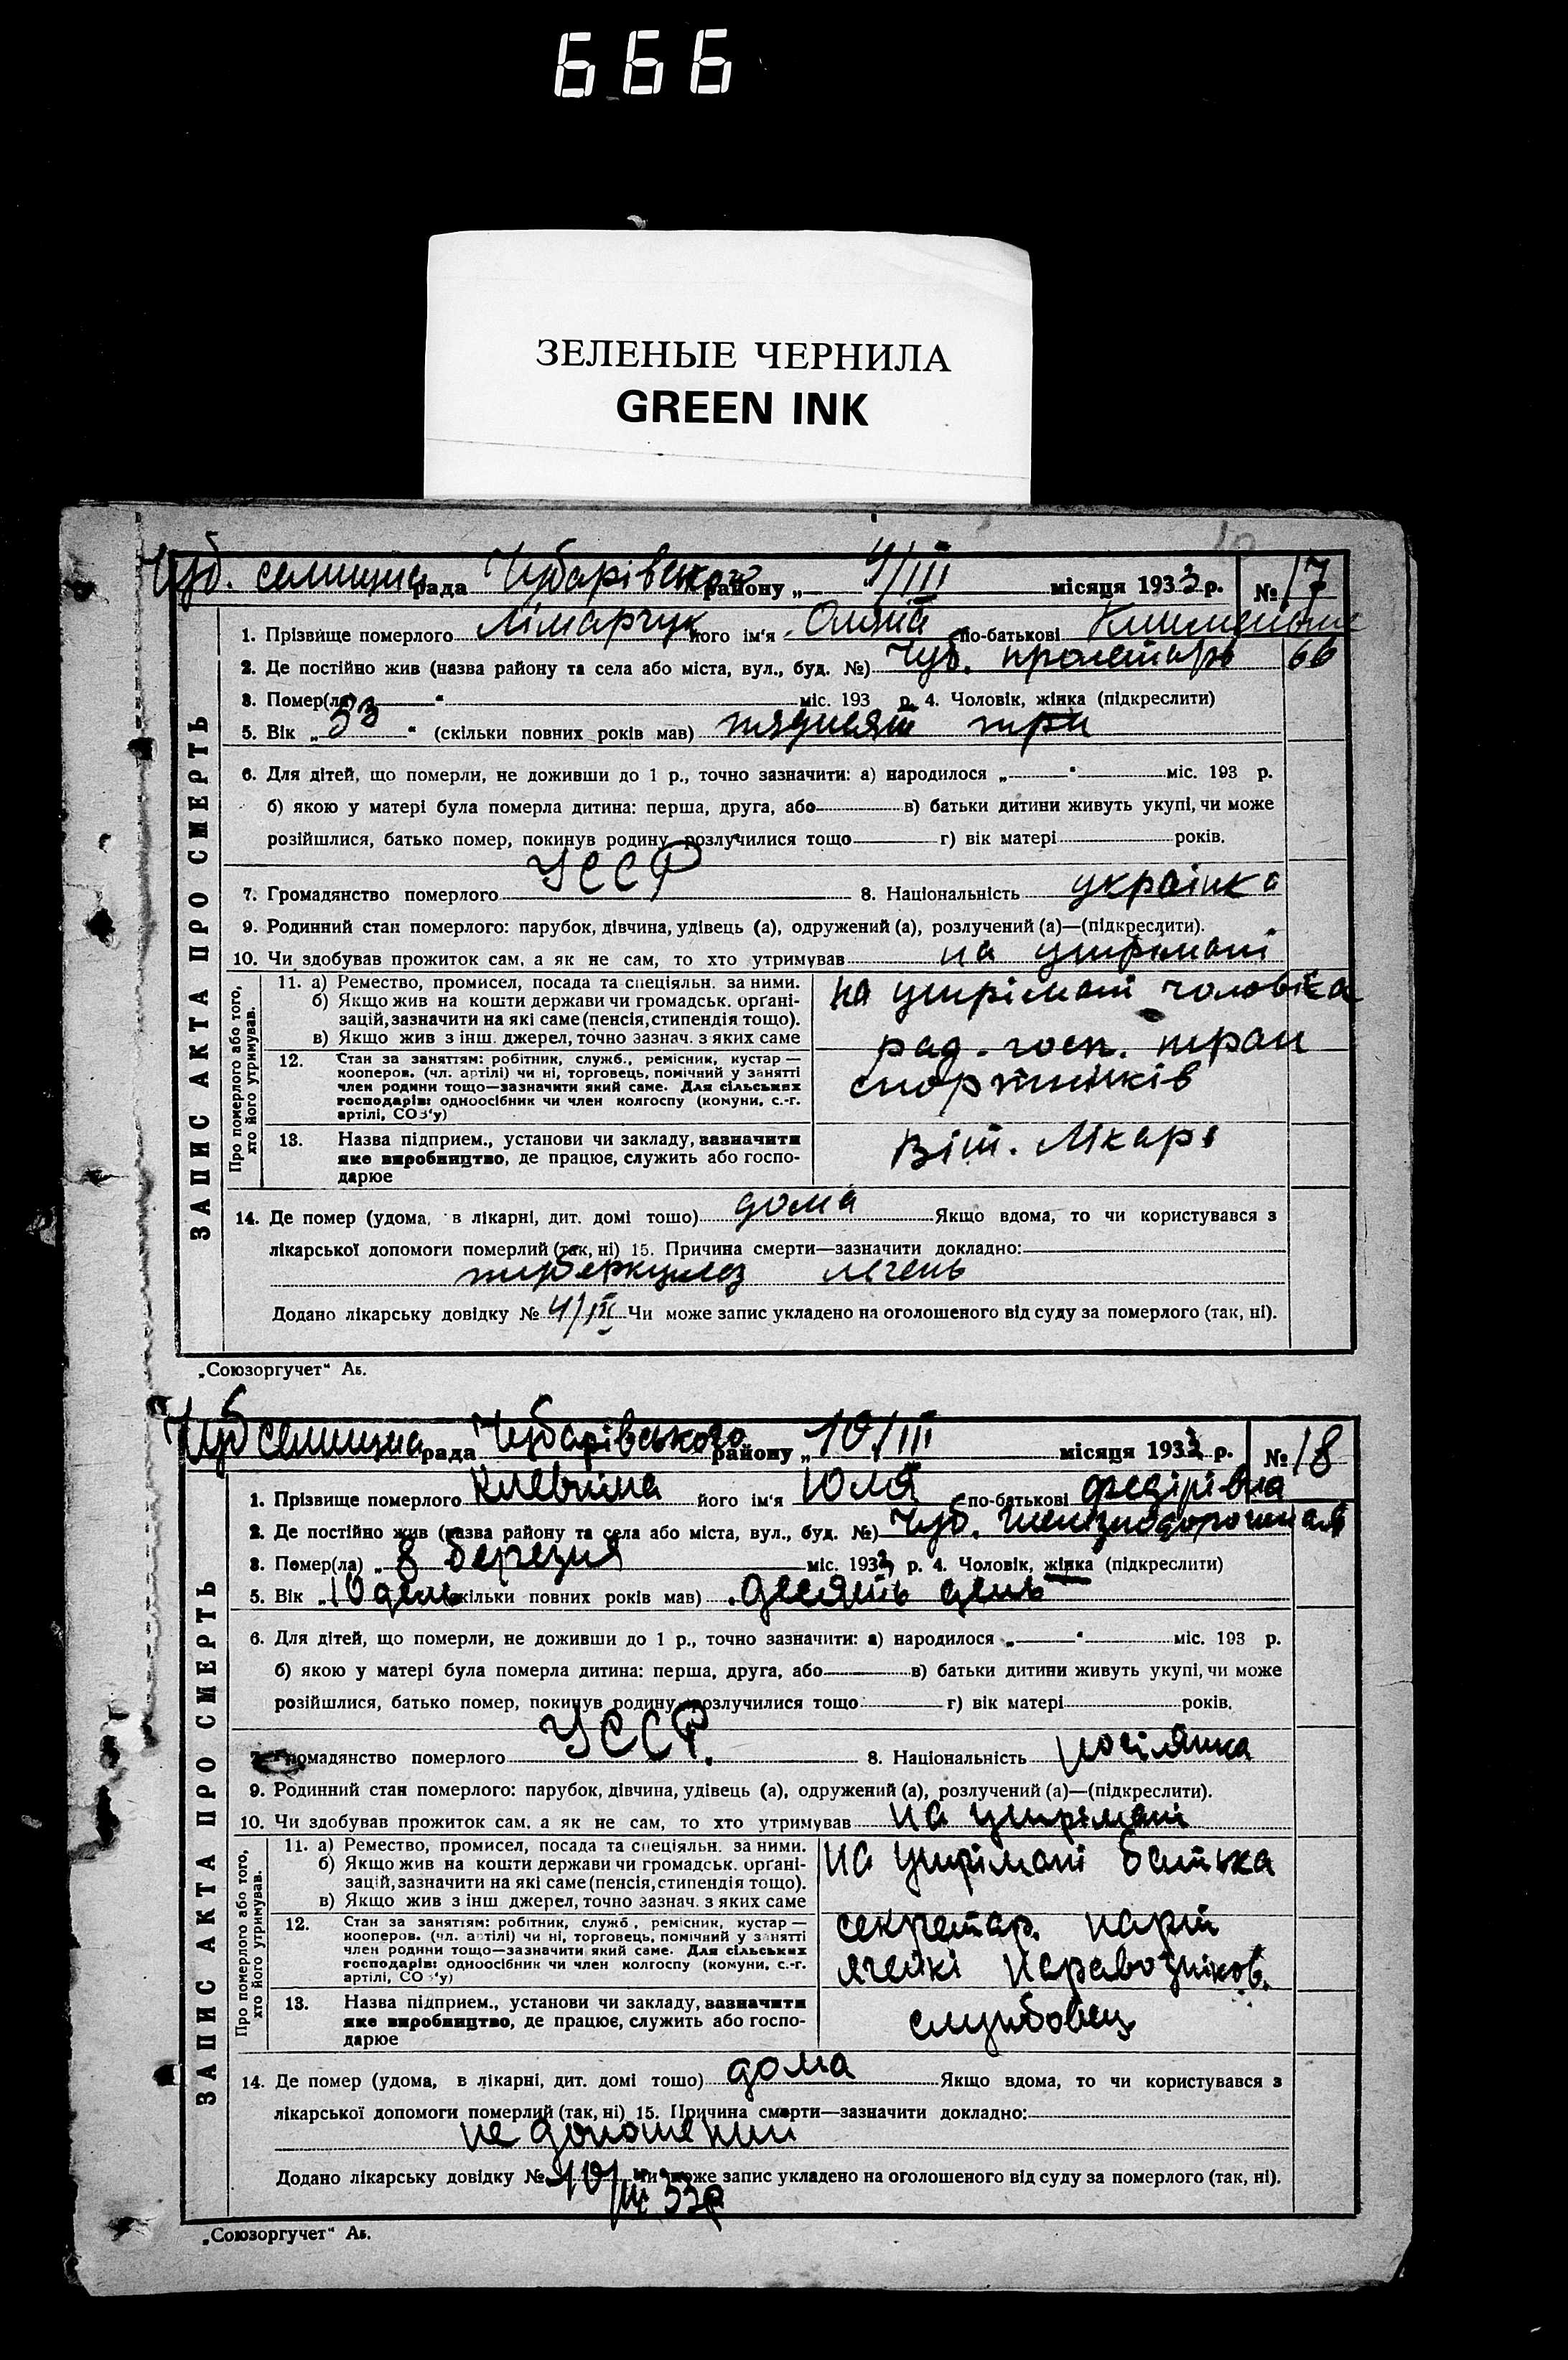 666
ЗЕЛЕНЫЕ ЧЕРНИЛА
GREEN INK
Чуб. селищна рада Чубарівського району „ 4/III місяця 1933 р. № 17
1. Прізвище померлого Лімарчук його ім'я по-батькові
2. Де постійно жив (назва району та села або міста, вул., буд. №) Чуб. 66
3. Помер(ла) „ “ міс. 193 р. 4. Чоловік, жінка (підкреслити)
5. Вік „ 53 “ (скільки повних років мав) три
6. Для дітей, що померли, не доживши до 1 р., точно зазначити: а) народилося „ “ міс. 193 р.
б) якою у матері була померла дитина: перша, друга, або в) батьки дитини живуть укупі, чи може
розійшлися, батько помер, покинув родину, розлучилися тощо г) вік матері років.
7. Громадянство померлого УССР 8. Національність українка
9. Родинний стан померлого: парубок, дівчина, удівець (а), одружений (а), розлучений (а)—(підкреслити).
10. Чи здобував прожиток сам, а як не сам, то хто утримував на утрімані
11. а) Ремество, промисел, посада та спеціяльн. за ними.
б) Якщо жив на кошти держави чи громадськ. органі-
зацій, зазначити на які саме (пенсія, стипендія тощо).
в) Якщо жив з інш. джерел, точно зазнач. з яких саме
на утрімані чоловіка
12. Стан за заняттям: робітник, служб., ремісник, кустар —
кооперов. (чл. артілі) чи ні, торговець, помічний у занятті
член родини тощо—зазначити який саме. Для сільських
господарів: одноосібник чи член колгоспу (комуни, с.-г.
артілі, СОЗ'у)
рад. госп. тран
спортників
13. Назва підприєм., установи чи закладу, зазначити
яке виробництво, де працює, служить або госпо-
дарює
Віт. Лікарь
14. Де помер (удома, в лікарні, дит. домі тощо) дома Якщо вдома, то чи користувався з
лікарської допомоги померлий (так, ні) 15. Причина смерти—зазначити докладно:
туберкульоз легень
Додано лікарську довідку № 4/III Чи може запис укладено на оголошеного від суду за померлого (так, ні).
ЗАПИС АКТА ПРО СМЕРТЬ
Про померлого або того,
хто його утримував.
„Союзоргучет“ Аб.
Чуб селищна рада Чубарівського району „ 10/III місяця 1933 р. № 18
1. Прізвище померлого його ім'я Юлія по-батькові Федірівна
2. Де постійно жив (назва району та села або міста, вул., буд. №) Чуб.
3. Помер(ла) „ 8 березня міс. 1933 р. 4. Чоловік, жінка (підкреслити)
5. Вік „ 10 день (скільки повних років мав) десять день
6. Для дітей, що померли, не доживши до 1 р., точно зазначити: а) народилося „ “ міс. 193 р.
б) якою у матері була померла дитина: перша, друга, або в) батьки дитини живуть укупі, чи може
розійшлися, батько помер, покинув родину, розлучилися тощо г) вік матері років.
7. Громадянство померлого УССР. 8. Національність
9. Родинний стан померлого: парубок, дівчина, удівець (а), одружений (а), розлучений (а)—(підкреслити).
10. Чи здобував прожиток сам, а як не сам, то хто утримував на утрімані
11. а) Ремество, промисел, посада та спеціяльн. за ними.
б) Якщо жив на кошти держави чи громадськ. органі-
зацій, зазначити на які саме (пенсія, стипендія тощо).
в) Якщо жив з інш джерел, точно зазнач. з яких саме
на утрімані батька
12. Стан за заняттям: робітник, служб., ремісник, кустар —
кооперов. (чл. артілі) чи ні, торговець, помічний у занятті
член родини тощо—зазначити який саме. Для сільських
господарів: одноосібник чи член колгоспу (комуни, с.-г.
артілі, СОЗ'у)
секретар. парт
ячейкі
13. Назва підприєм., установи чи закладу, зазначити
яке виробництво, де працює, служить або госпо-
дарює
службовец
14. Де помер (удома, в лікарні, дит. домі тощо) дома Якщо вдома, то чи користувався з
лікарської допомоги померлий (так, ні) 15. Причина смерти—зазначити докладно:
не
Додано лікарську довідку № 10/III 33р Чи може запис укладено на оголошеного від суду за померлого (так, ні).
ЗАПИС АКТА ПРО СМЕРТЬ
Про померлого або того,
хто його утримував.
„Союзоргучет“ Аб.